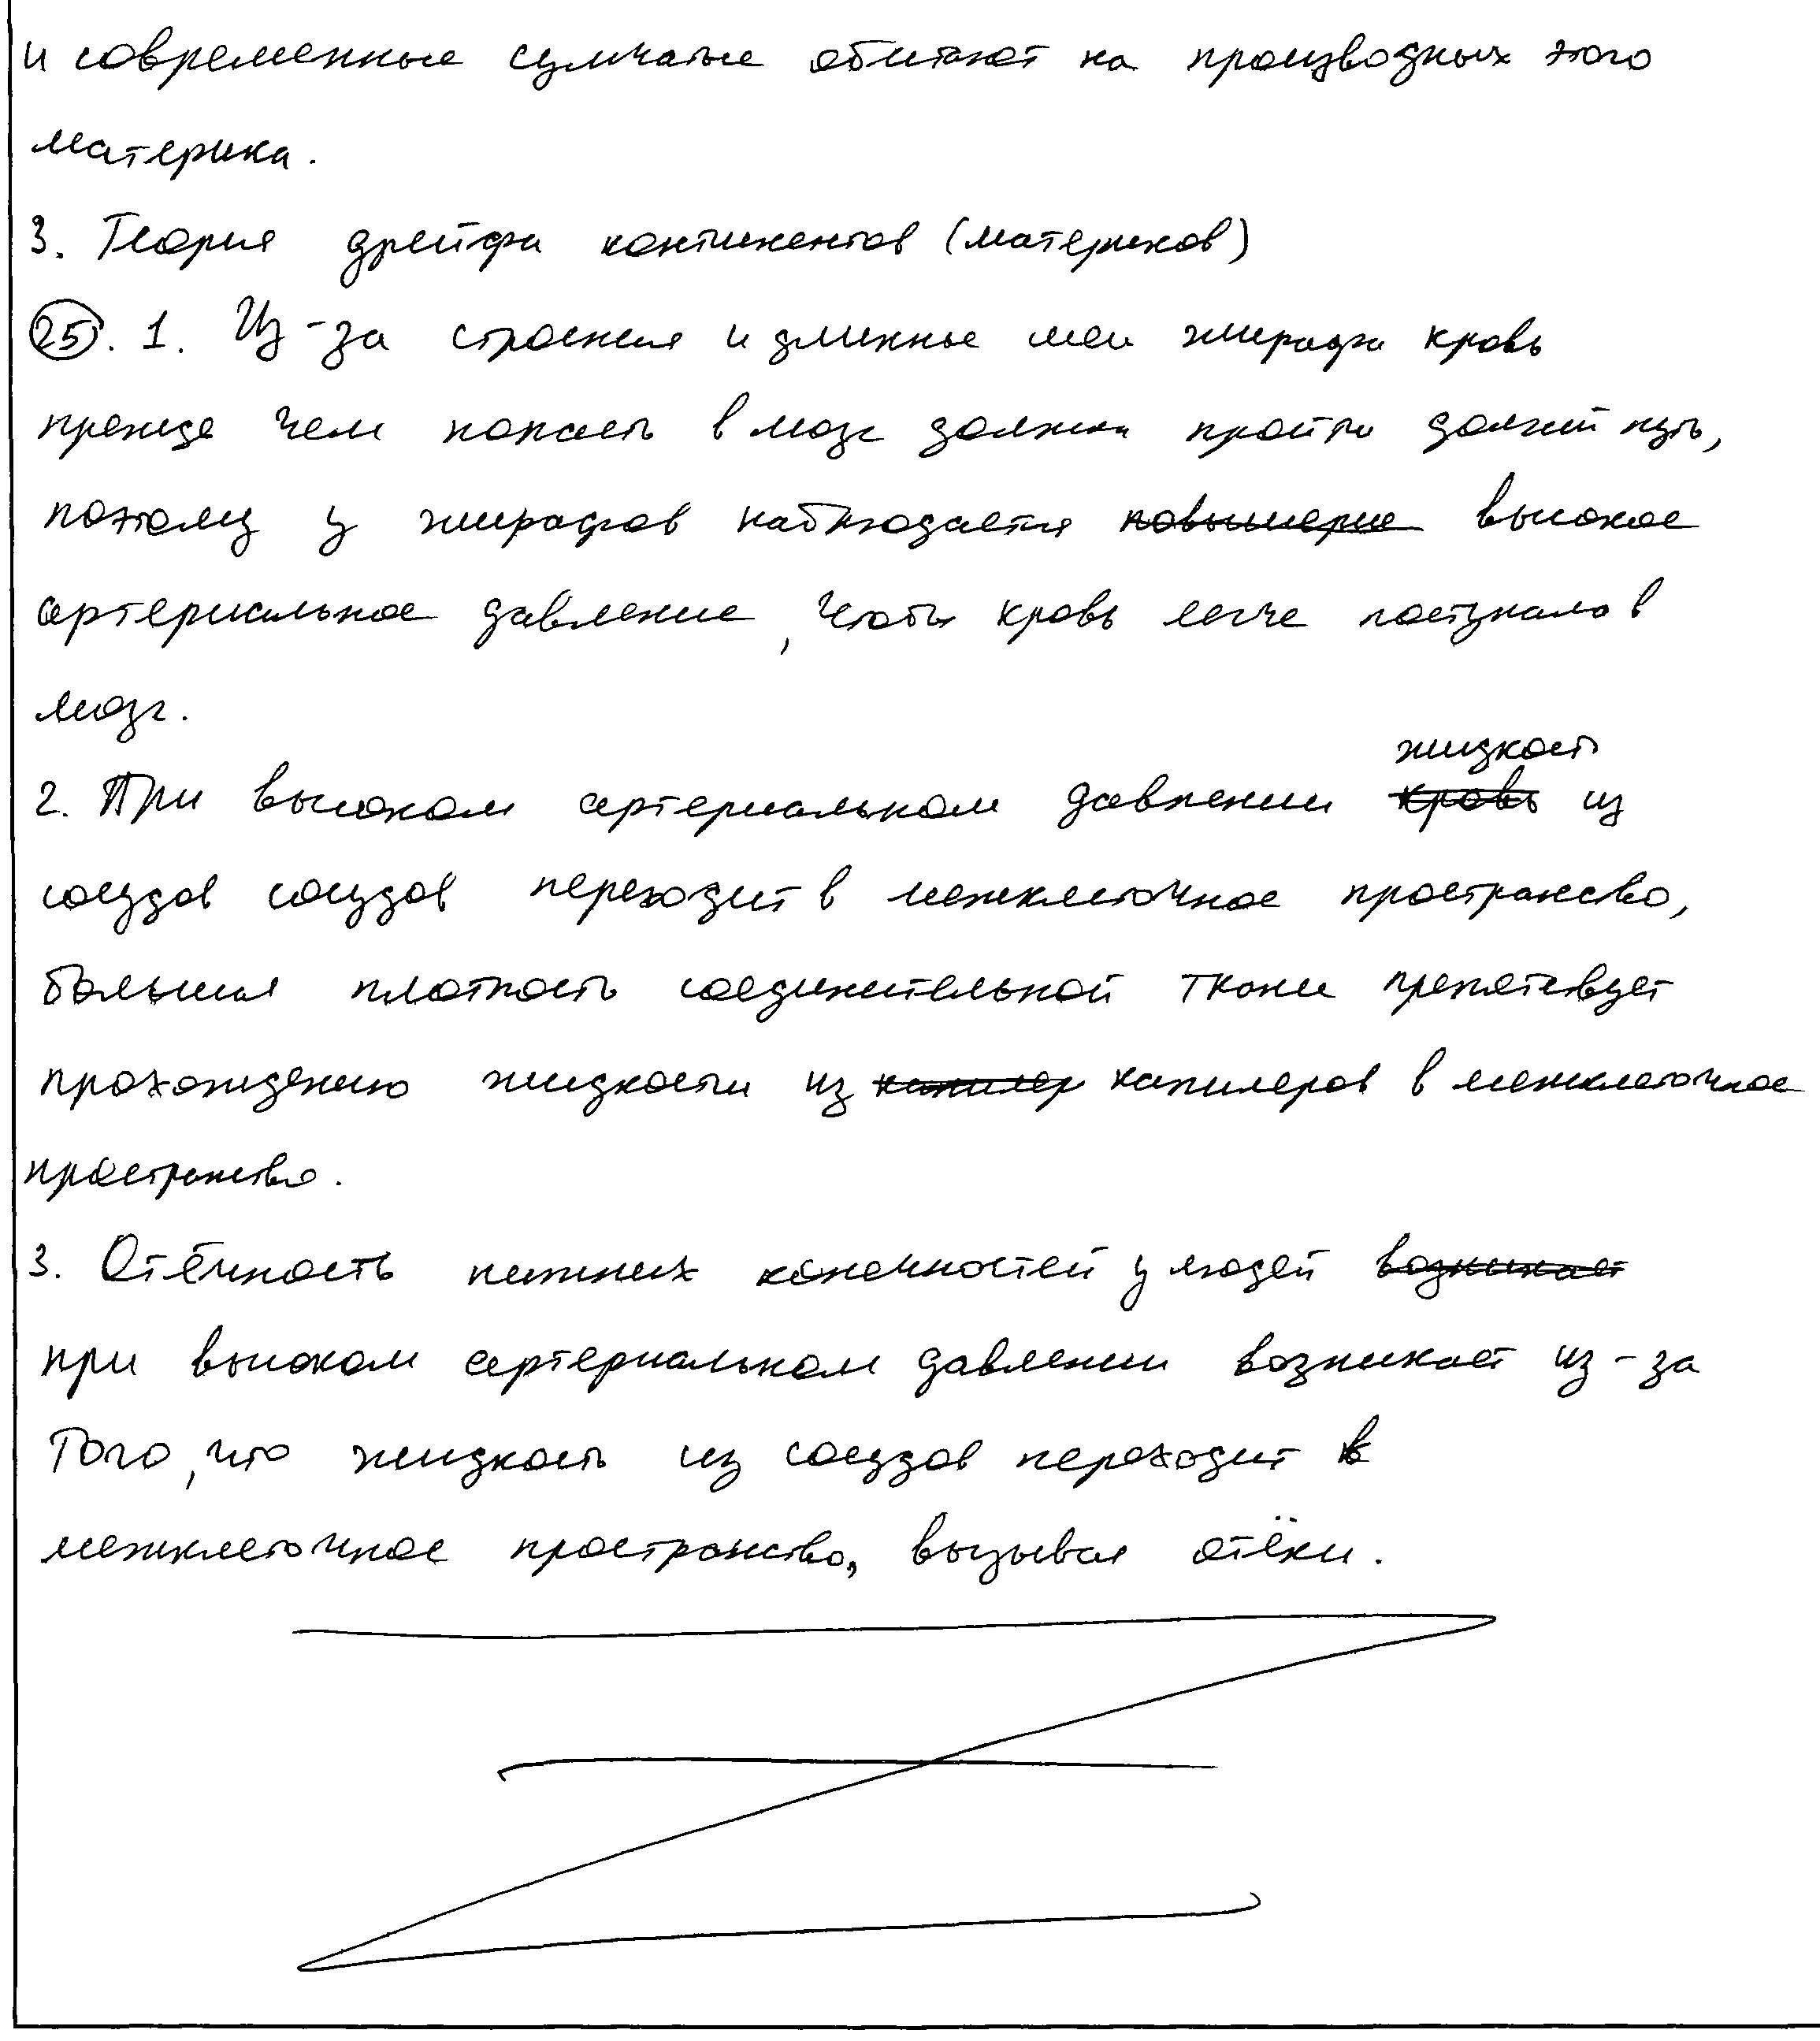 и современные сумчатые обитают на производных этого
материка.
3. Теория дрейфа континентов (материков)
25. 1. Из-за строения и длинные шеи жирафа кровь
прежде чем попасть в мозг должна пройти долгий путь,
поэтому у жирафов наблюдается повышение высокое
артериальное давление, чтобы кровь легче поступала в
мозг.
жидкость
2. При высоком артериальном давлении кровь из
сосудов сосудов переходит в межклеточное пространство,
большая плотность соединительной ткани препятствует
прохождению жидкости из капиляр капиляров в межклеточное
пространство.
3. Отёчность нижних конечностей у людей возникает
при высоком артериальном давлении возникает из-за
того, что жидкость из сосудов переходит в
межклеточное пространство, вызывая отёки.